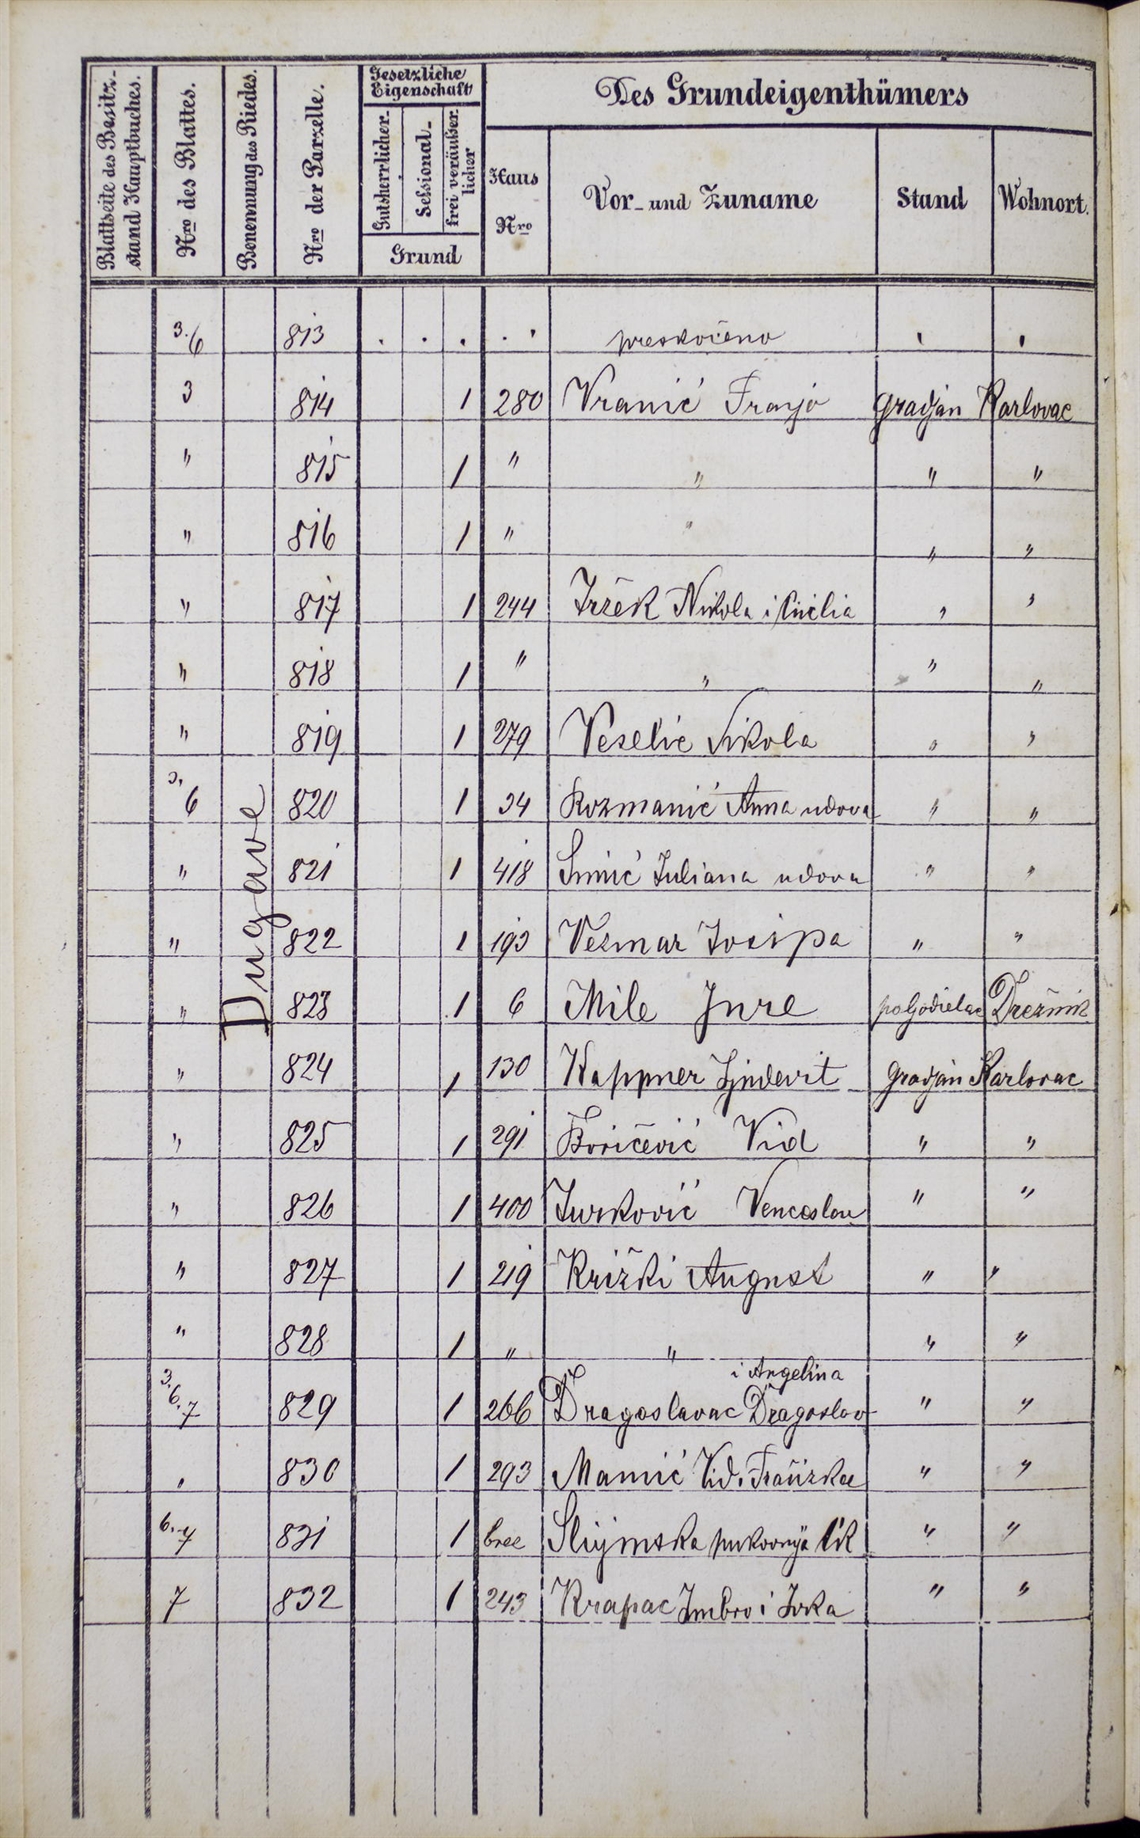 Blattseite des Besitz-stand Hauptbuches. Nro des Blattes. Benennung des Riedes. Nro der Parzelle. Gesetzliche Eigenschaft Gutsherrlicher. Sessional- frei veräußerlicher Grund
Des Grundeigenthümers
Haus Nro Vor- und Zuname Stand Wohnort.
Dugave
3.6 813 . . . . . preskočeno . .
3 814 1 280 Vranić Franjo gradjan Karlovac
" 815 1 " " " "
" 816 1 " " " "
" 817 1 244 Iržek Nikola i " "
" 818 1 " " " "
" 819 1 279 Veselić Nikola " "
3.6 820 1 34 Rozmanić Anna udova " "
" 821 1 418 Simić Juliana udova " "
" 822 1 193 Vezmar Josipa " "
" 823 1 6 Mile Jure poljodielac Drežnik
" 824 1 130 Kappner Ljudevit gradjan Karlovac
" 825 1 291 Boričević Vid " "
" 826 1 400 Jurković Venceslav " "
" 827 1 219 Križki August " "
" 828 1 " " " "
i Angelina
3.6.7 829 1 266 Dragoslavac Dragoslav " "
" 830 1 293 Mamić Vid i " "
6.7 831 1 Slujnska pukovnija " "
7 832 1 243 Krapac Imbro i Ivka " "